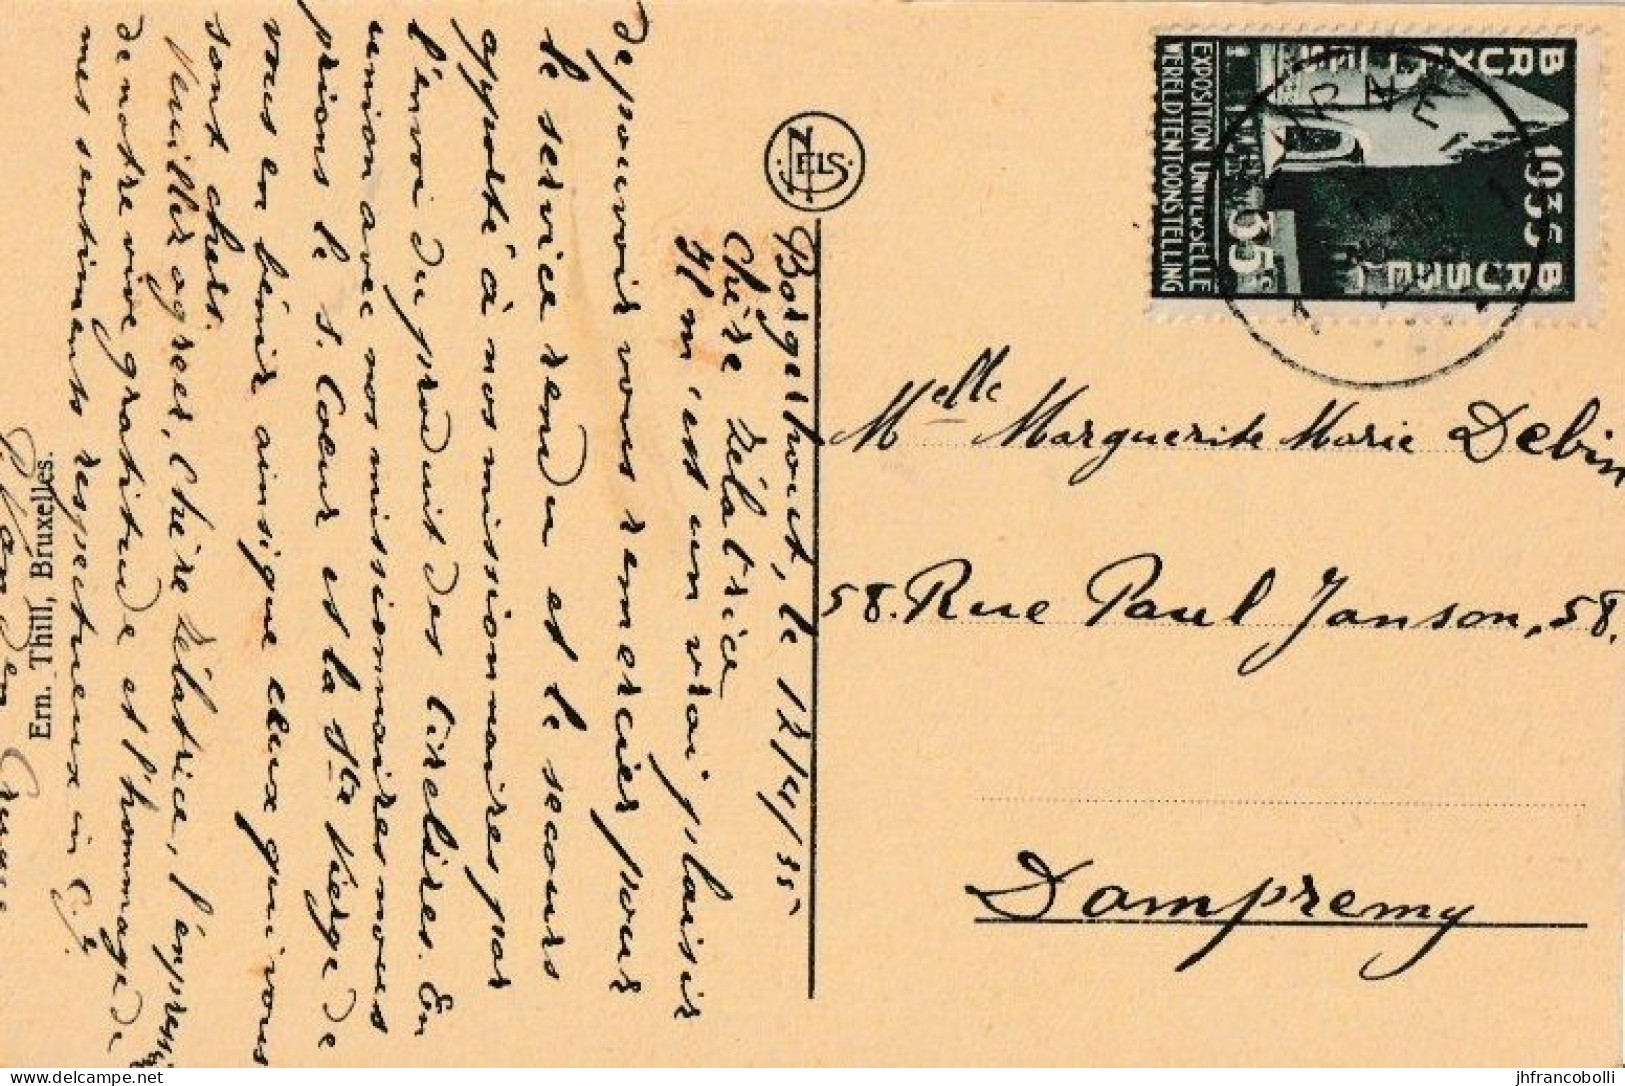 Borgerhout, le 12/4/35
Chère Zélatrice
Il m'est un vrai plaisir
de pouvoir vous remercier pour
le service rendu et le secours
apporté à nos missionnaires par
l'envoi du produit des tirelires. En
union avec nos missionnaires nous
prions le S. Coeur et la Ste Vierge de
vous en bénir ainsi que ceux qui vous
sont chers.
Veuillez agréer, Chère Zélatrice, l'expressi
de notre vive gratitude et l'hommage de
mes sentiments respectueux in
Ern. Thill, Bruxelles.
NELS
BRUXELLES 1935
1935 BRUSSEL
EXPOSITION UNIVERSELLE
WERELDTENTOONSTELLING
35c
Melle Marguerite Marie Debin
58. Rue Paul Janson, 58.
Dampremy
delcampe.net
jhfrancobolli